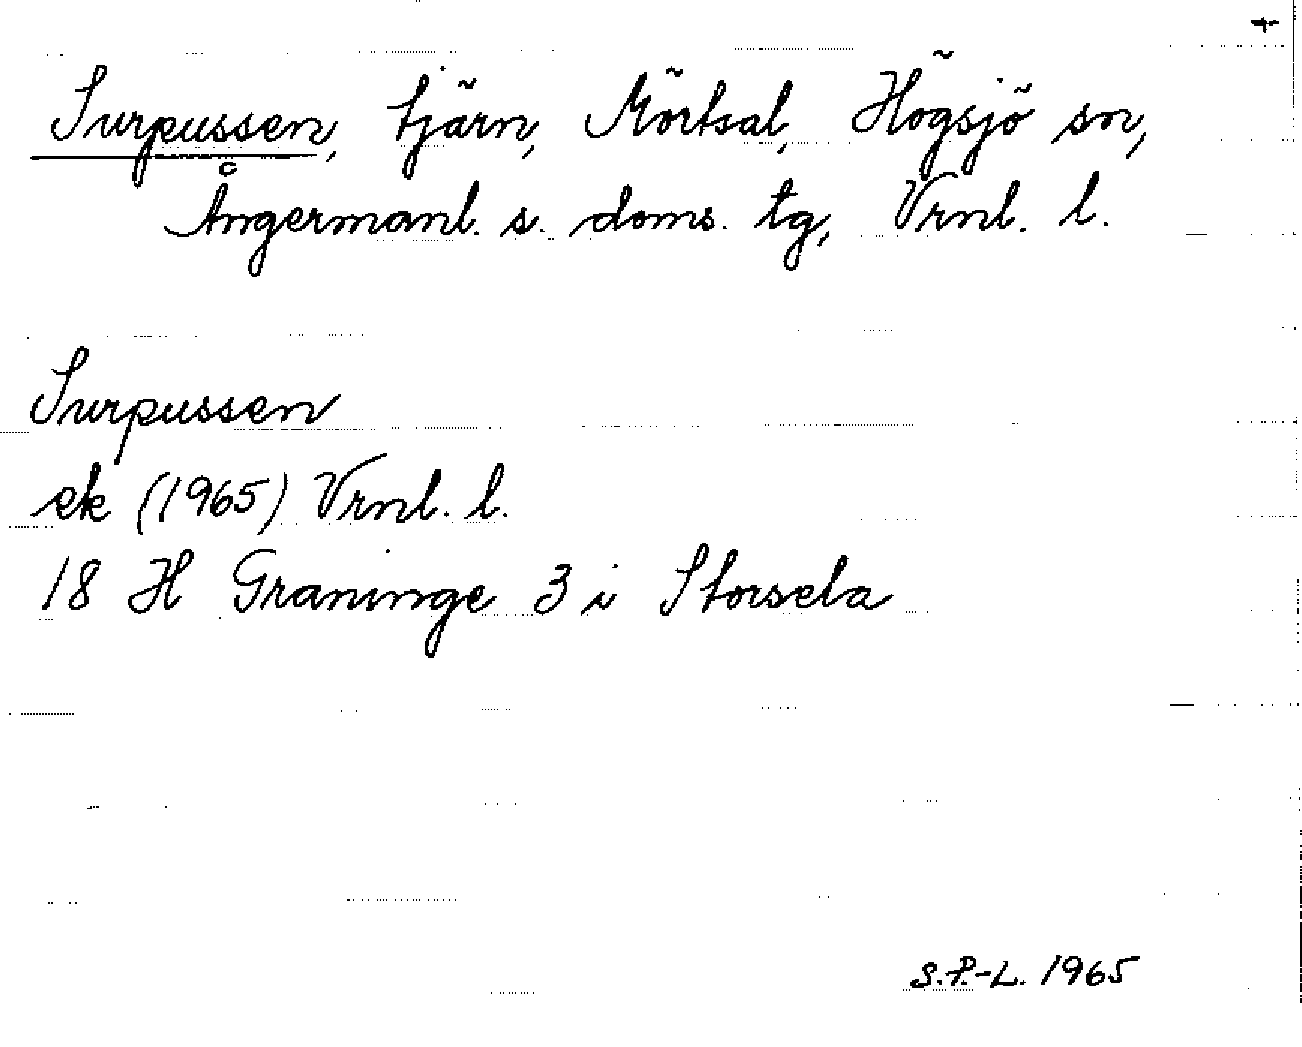 Surpussen, tjärn, Mörtsal, Högsjö sn,
Ångermanl. s. doms. tg, Vrnl. l.
Surpussen
ek (1965) Vrnl. l.
18 H Graninge 3 i Storsela
S.P.-L. 1965